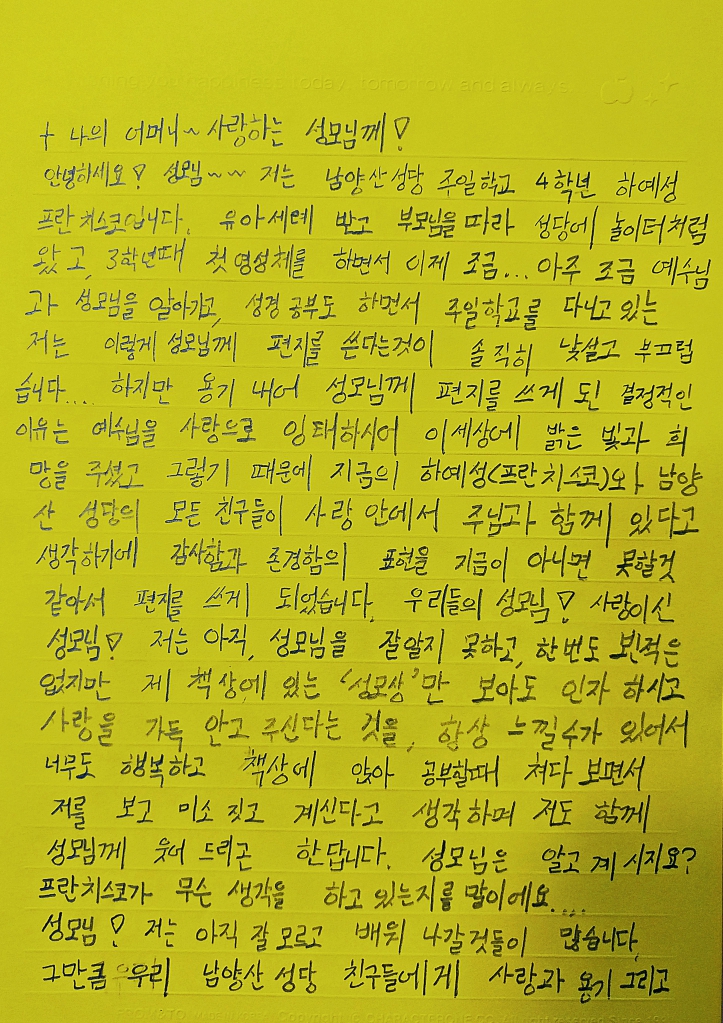 today, tomorrow and always
+ 나의 어머니~ 사랑하는 성모님께!
안녕하세요! 성모님~~ 저는 남양산성당 주일학교 4학년 하예성
프란치스코입니다. 유아세례 받고 부모님을 따라 성당에 놀이터처럼
왔고, 3학년때 첫영성체를 하면서 이제 조금... 아주 조금 예수님
과 성모님을 알아가고, 성경공부도 하면서 주일학교를 다니고 있는
저는 이렇게 성모님께 편지를 쓴다는것이 솔직히 낯설고 부끄럽
습니다.... 하지만 용기 내어 성모님께 편지를 쓰게 된 결정적인
이유는 예수님을 사랑으로 잉태하시어 이세상에 밝은 빛과 희
망을 주셨고 그렇기 때문에 지금의 하예성(프란치스코)와 남양
산 성당의 모든 친구들이 사랑 안에서 주님과 함께 있다고
생각하기에 감사함과 존경함의 표현을 지금이 아니면 못할것
같아서 편지를 쓰게 되었습니다. 우리들의 성모님! 사랑이신
성모님! 저는 아직, 성모님을 잘알지 못하고, 한번도 뵌적은
없지만 제 책상에 있는 '성모상'만 보아도 인자 하시고
사랑을 가득 안고 주신다는 것을, 항상 느낄수가 있어서
너무도 행복하고 책상에 앉아 공부할때 쳐다 보면서
저를 보고 미소 짓고 계신다고 생각하며 저도 함께
성모님께 웃어 드리곤 한답니다. 성모님은 알고 계시지요?
프란치스코가 무슨 생각을 하고 있는지를 말이에요....
성모님! 저는 아직 잘모르고 배워 나갈것들이 많습니다.
그만큼 우리 남양산 성당 친구들에게 사랑과 용기 그리고